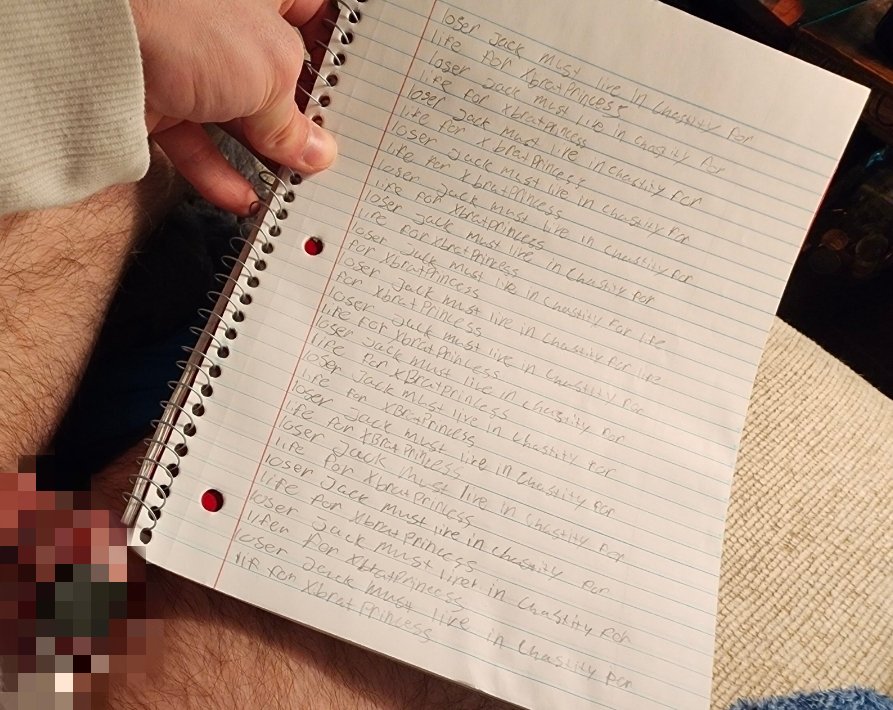 loser Jack must live in Chastity for
life for XbratPrincess
loser Jack must live in chastity for
life for XbratPrincess
loser Jack must live in chastity for
life for XbratPrincess
loser Jack must live in chastity for
life for XbratPrincess
loser Jack must live in chastity for
life for XbratPrincess
loser Jack must live in Chastity for
life for XbratPrincess
loser Jack must live in Chastity for life
for XbratPrincess
loser Jack must live in Chastity for life
for XbratPrincess
loser Jack must live in Chastity for
life for XbratPrincess
loser Jack must live in chastity for
life for XBratPrincess
loser Jack must live in Chastity for
life for XBratPrincess
loser Jack must live in Chastity for
life for XBratPrincess
loser Jack must live in Chastity for
life for XbratPrincess
loser Jack must live in chastity for
life for XbratPrincess
loser Jack must live in Chastity for
lifer for XbratPrincess
loser Jack must live in Chastity for
lif for XbratPrincess